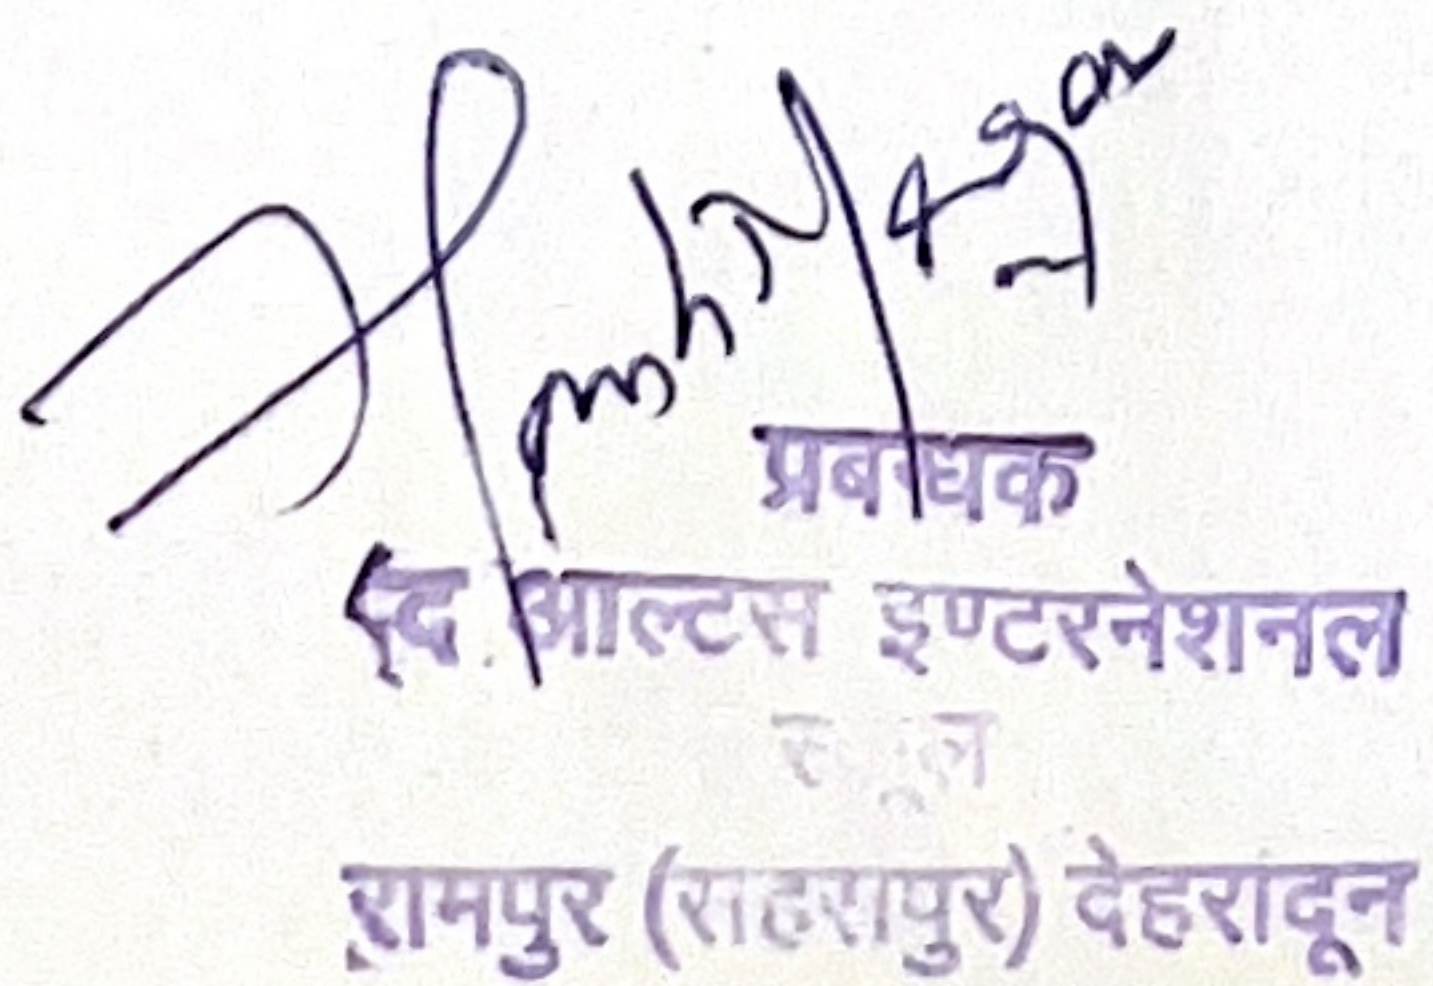 प्रबन्धक
द आल्टस इण्टरनेशनल
रामपुर (सहसपुर) देहरादून